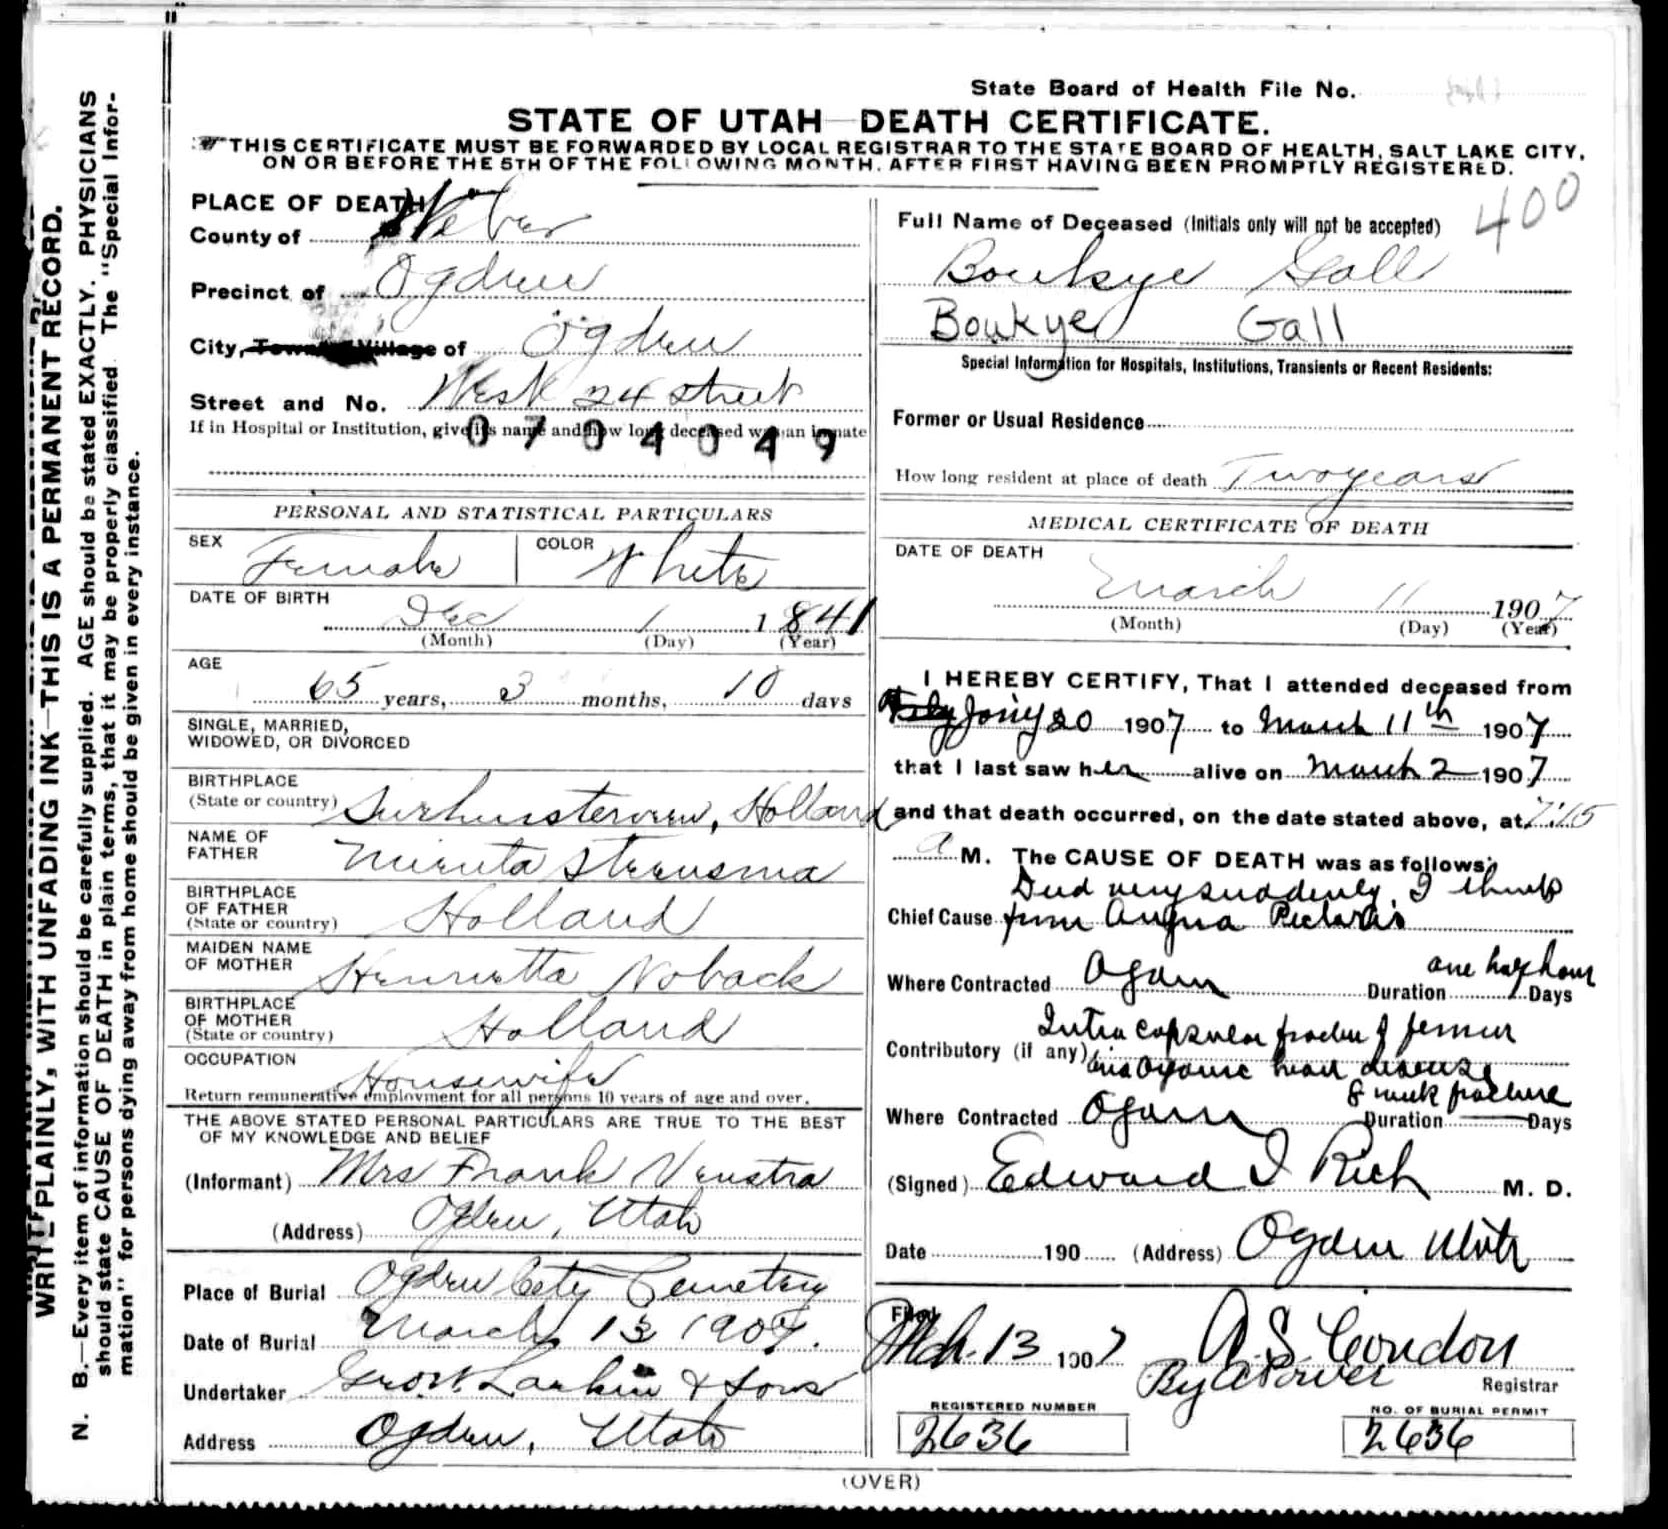 State Board of Health File No.
STATE OF UTAH—DEATH CERTIFICATE.
THIS CERTIFICATE MUST BE FORWARDED BY LOCAL REGISTRAR TO THE STATE BOARD OF HEALTH, SALT LAKE CITY,
ON OR BEFORE THE 5TH OF THE FOLLOWING MONTH, AFTER FIRST HAVING BEEN PROMPTLY REGISTERED.
WRITE PLAINLY, WITH UNFADING INK—THIS IS A PERMANENT RECORD.
N. B.—Every item of information should be carefully supplied. AGE should be stated EXACTLY. PHYSICIANS
should state CAUSE OF DEATH in plain terms, that it may be properly classified. The "Special Infor-
mation" for persons dying away from home should be given in every instance.
PLACE OF DEATH
County of Weber
Precinct of Ogden
City, Town or Village of Ogden
Street and No. West 24 Street
If in Hospital or Institution, give its name and how long deceased was an inmate
0704049
PERSONAL AND STATISTICAL PARTICULARS
SEX Female COLOR White
DATE OF BIRTH
Dec 1 1841
(Month) (Day) (Year)
AGE
65 years, 3 months, 10 days
SINGLE, MARRIED,
WIDOWED, OR DIVORCED
BIRTHPLACE
(State or country) Holland
NAME OF
FATHER
BIRTHPLACE
OF FATHER Holland
(State or country)
MAIDEN NAME
OF MOTHER Henrietta Noback
BIRTHPLACE
OF MOTHER Holland
(State or country)
OCCUPATION
Housewife
Return remunerative employment for all persons 10 years of age and over.
THE ABOVE STATED PERSONAL PARTICULARS ARE TRUE TO THE BEST
OF MY KNOWLEDGE AND BELIEF
(Informant) Mrs Frank Venstra
(Address) Ogden, Utah
Place of Burial Ogden City Cemetery
Date of Burial March 13 1907.
Undertaker Geo. W. Larkin & Sons
Address Ogden, Utah
400
Full Name of Deceased (Initials only will not be accepted)
Boukye Gall
Boukye Gall
Special Information for Hospitals, Institutions, Transients or Recent Residents:
Former or Usual Residence
How long resident at place of death Two years
MEDICAL CERTIFICATE OF DEATH
DATE OF DEATH
March 11 1907
(Month) (Day) (Year)
I HEREBY CERTIFY, That I attended deceased from
20 1907 to March 11th 1907
that I last saw her alive on March 2 1907
and that death occurred, on the date stated above, at 7:15
a M. The CAUSE OF DEATH was as follows:
Died very suddenly, I think
Chief Cause from Angina Pectoris
Where Contracted Ogden one half hour
Duration Days
Intra capsular fracture of femur
Contributory (if any)
and organic heart disease
8 week fracture
Where Contracted Ogden Duration Days
(Signed) Edward I Rich M. D.
Date 190 (Address) Ogden Utah
Filed
Mch. 13 1907 A. S. Condon
By Registrar
REGISTERED NUMBER
2636
NO. OF BURIAL PERMIT
2636
(OVER)